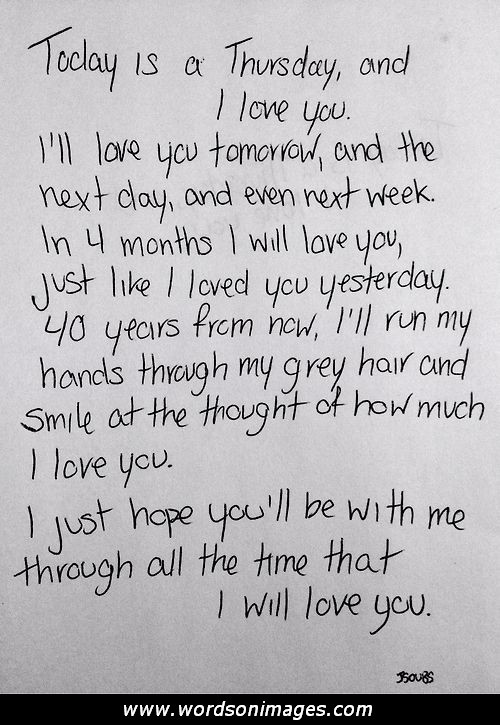 Today is a Thursday, and
I love you.
I'll love you tomorrow, and the
next day, and even next week.
In 4 months I will love you,
just like I loved you yesterday.
40 years from now, I'll run my
hands through my grey hair and
smile at the thought of how much
I love you.
I just hope you'll be with me
through all the time that
I will love you.
JSOUBS
www.wordsonimages.com